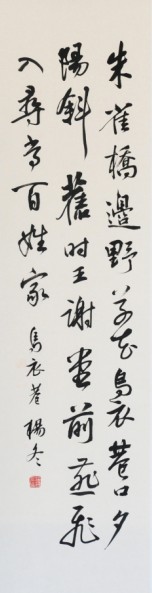 朱雀橋邊野草花烏衣巷口夕
陽斜舊时王谢堂前燕飛
入尋常百姓家烏衣巷楊冬